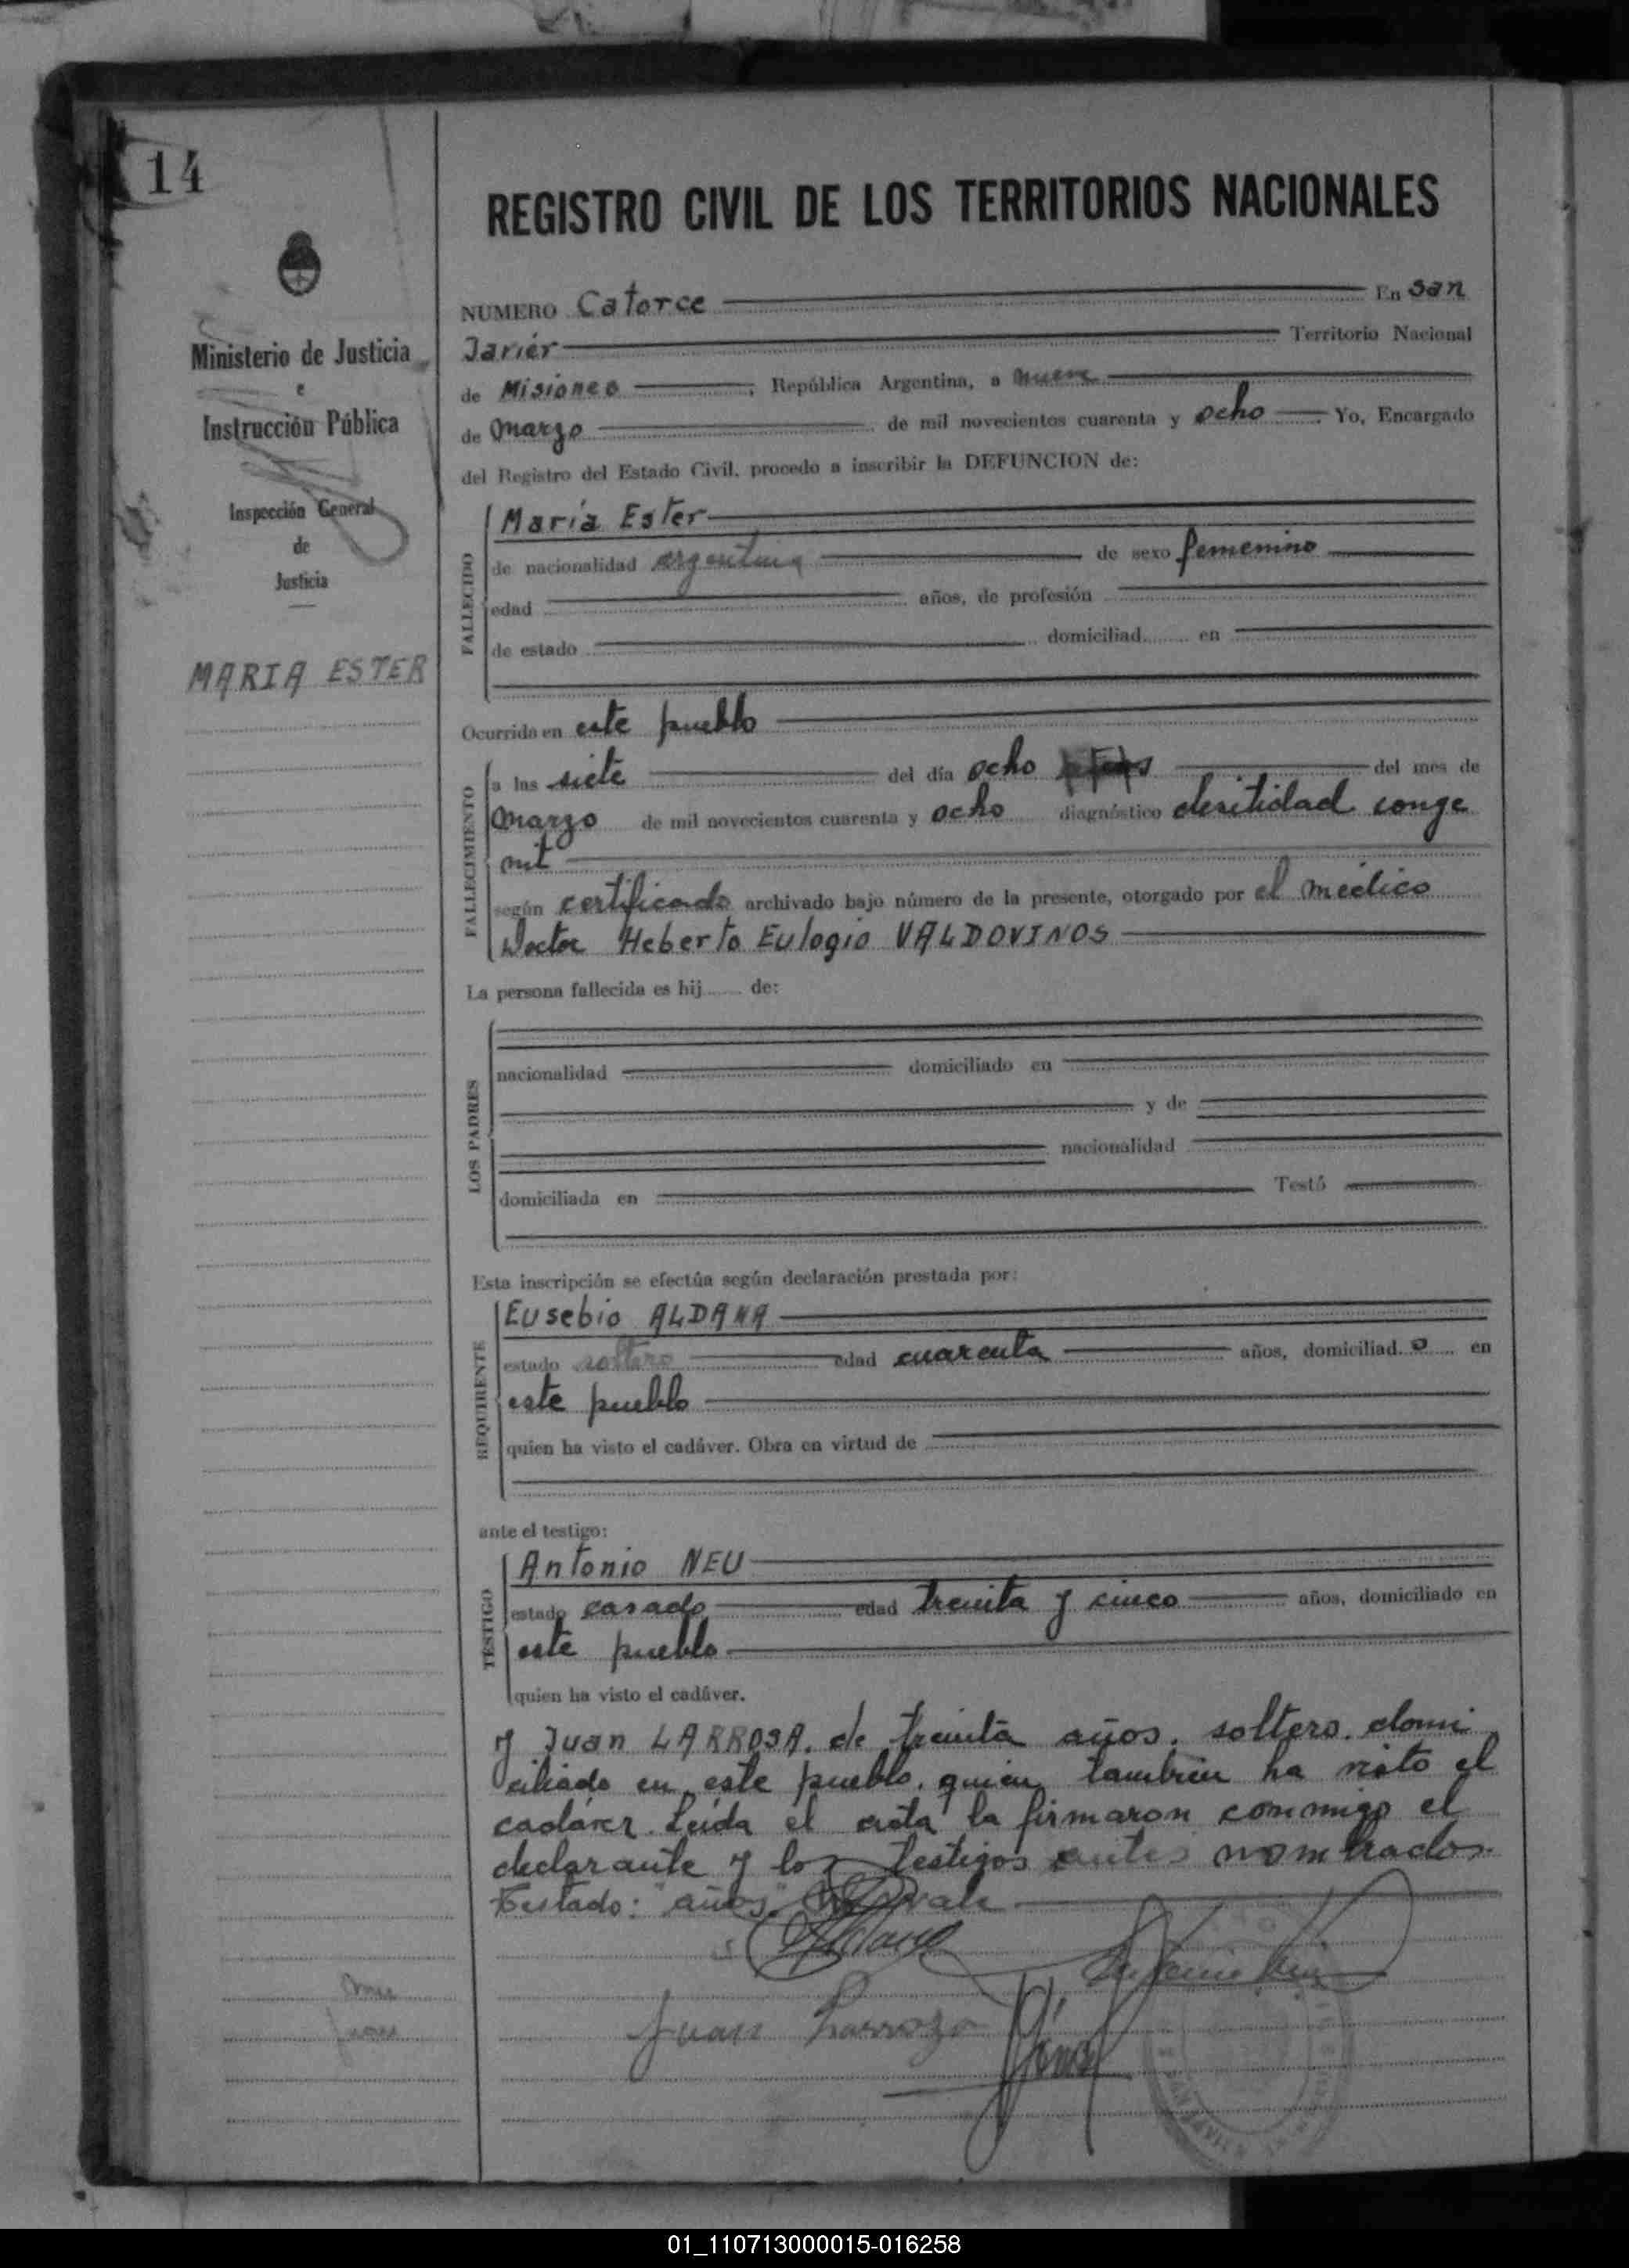 14
Ministerio de Justicia
e
Instrucción Pública
Inspección General
de
Justicia
MARIA ESTER
REGISTRO CIVIL DE LOS TERRITORIOS NACIONALES
NUMERO Catorce En San
Javier Territorio Nacional
de Misiones, República Argentina, a nueve
de Marzo de mil novecientos cuarenta y ocho Yo, Encargado
del Registro del Estado Civil, procedo a inscribir la DEFUNCION de:
FALLECIDO
María Ester
de nacionalidad argentina de sexo femenino
edad años, de profesión
de estado domiciliad en
Ocurrido en este pueblo
FALLECIMIENTO
a las siete del día ocho del mes de
Marzo de mil novecientos cuarenta y ocho diagnóstico devitidad conge
nit
según certificado archivado bajo número de la presente, otorgado por el médico
Doctor Heberto Eulogio VALDOVINOS
La persona fallecida es hij de:
LOS PADRES
nacionalidad domiciliado en
y de
nacionalidad
domiciliada en Testó
Esta inscripción se efectúa según declaración prestada por:
REQUIRENTE
Eusebio ALDANA
estado soltero edad cuarenta años, domiciliad o en
este pueblo
quien ha visto el cadáver. Obra en virtud de
ante el testigo:
TESTIGO
Antonio NEU
estado casado edad treinta y cinco años, domiciliado en
este pueblo
quien ha visto el cadáver.
y Juan LARROSA. de treinta años. soltero. domi
ciliado en este pueblo. quien también ha visto el
cadáver. Leída el acta la firmaron conmigo el
declarante y los testigos antes nombrados.
Testado: "años". vale
Juan Larroza
01_110713000015-016258